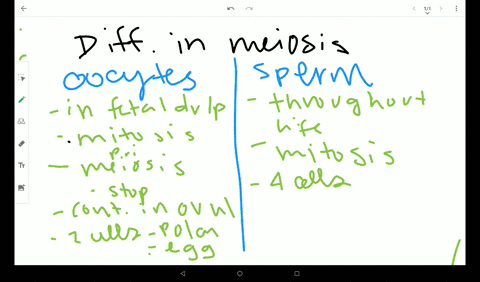 Diff. in meiosis
oocytes
- in fetal dvlp
- mitosis
pri
- meiosis
· stop
- cont. in ovul
- 2 cells - polar
- egg
sperm
- throughout
life
- mitosis
- 4 cells
1/1
Tr